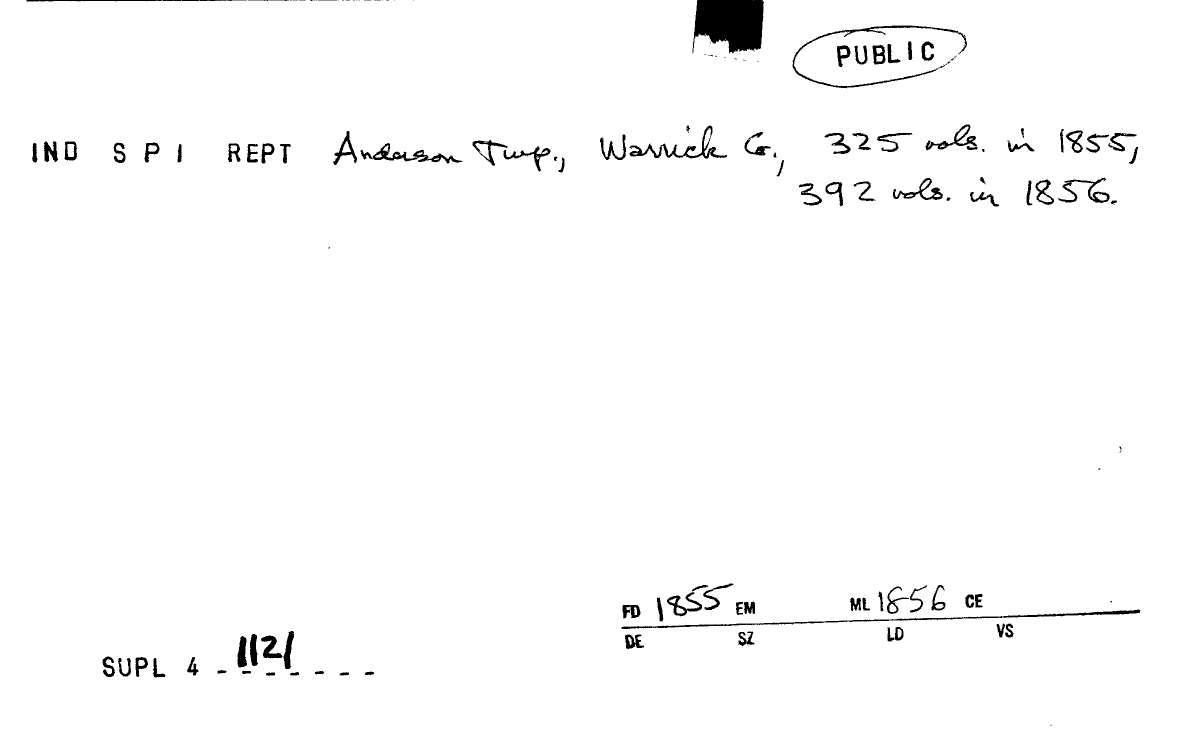 PUBLIC
IND S P I REPT Anderson Twp., Warrick Co., 325 vols. in 1855,
392 vols. in 1856.
FD 1855 EM ML 1856 CE
DE SZ LD VS
SUPL 4 - 1121